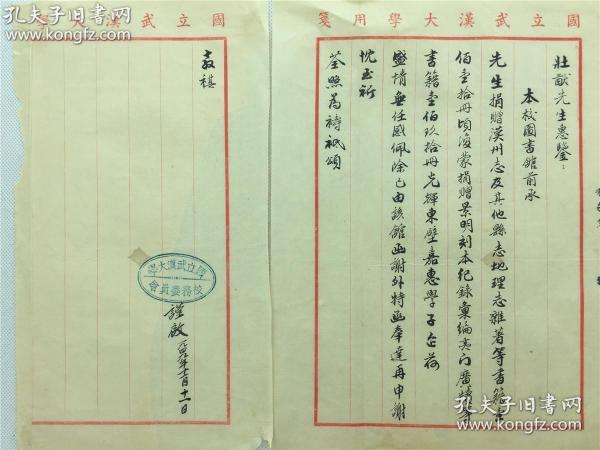 國立武漢大學用箋
壯猷先生惠鑒：
本校圖書館前承
先生捐贈漢州志及其他縣志地理志雜著等書籍
佰壹拾冊頃復蒙捐贈景明刻本紀錄彙編夷門廣牘等
書籍壹佰玖拾冊光輝東壁嘉惠學子企荷
盛情無任感佩除已由該館函謝外特函奉達再申謝
忱至祈
荃照為禱祗頌
國立武漢大
教祺
國立武漢大學
校務委員會
謹啟
十二月十一日
孔夫子旧书网
kongfz.com
孔夫子旧书网
kongfz.com
孔夫子旧书网
kongfz.com
孔夫子旧书网
kongfz.com